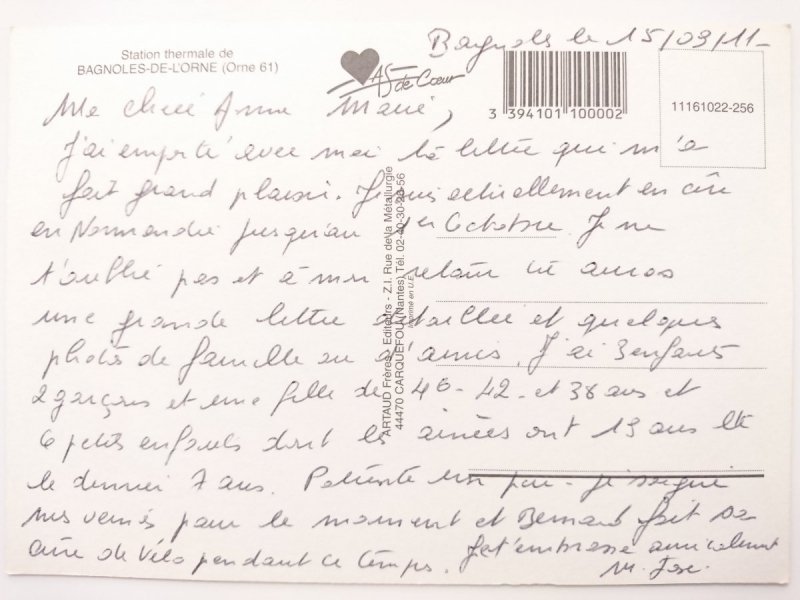 Bagnoles le 15/09/11-
Station thermale de
BAGNOLES-DE-L'ORNE (Orne 61)
AS de Cœur
3 394101 100002
11161022-256
Ma chère Anne Marie,
J'ai emporté avec moi ta lettre qui m'a
fait grand plaisir. Je suis actuellement en cure
en Normandie jusqu'au 1er Octobre. Je ne
t'oublie pas et à mon retour tu auras
une grande lettre détaillée et quelques
photos de famille ou d'amis. J'ai 3 enfants
2 garçons et une fille de 46-42-et 38 ans et
6 petits enfants dont les ainées ont 19 ans
le dernier 7 ans. Patiente un peu - je soigne
mes veines pour le moment et Bernard fait sa
cure de Vélo pendant ce temps. Je t'embrasse amicalement
M. José.
ARTAUD Frères / Editeurs - Z.I. Rue de la Métallurgie
44470 CARQUEFOU (Nantes) Tél. 02-40-30-28-56
Imprimé en U.E.